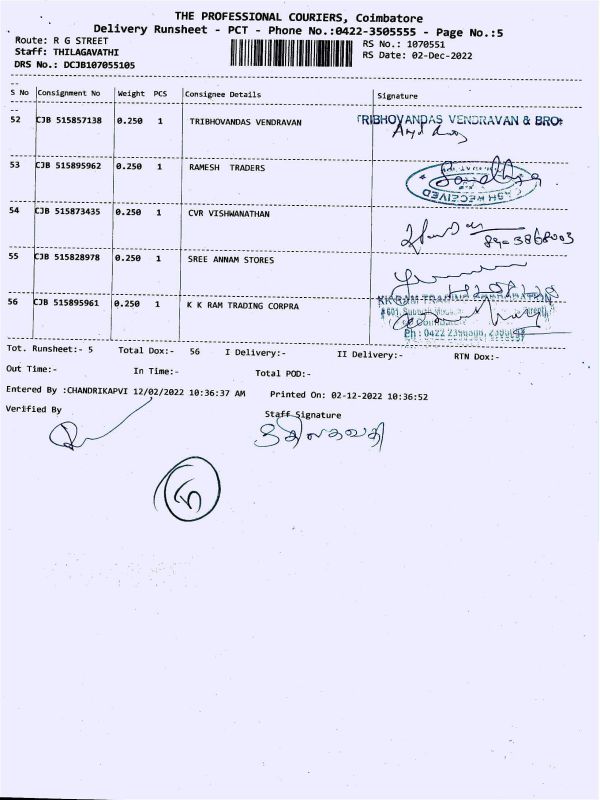 THE PROFESSIONAL COURIERS, Coimbatore
Delivery Runsheet - PCT - Phone No.:0422-3505555 - Page No.:5
Route: R G STREET RS No.: 1070551
Staff: THILAGAVATHI RS Date: 02-Dec-2022
DRS No.: DCJB107055105
S No Consignment No Weight PCS Consignee Details Signature
52 CJB 515857138 0.250 1 TRIBHOVANDAS VENDRAVAN TRIBHOVANDAS VENDRAVAN & BRO
53 CJB 515895962 0.250 1 RAMESH TRADERS
RECEIVED
54 CJB 515873435 0.250 1 CVR VISHWANATHAN
55 CJB 515828978 0.250 1 SREE ANNAM STORES
56 CJB 515895961 0.250 1 K K RAM TRADING CORPRA KK RAM TRADING
Tot. Runsheet:- 5 Total Dox:- 56 I Delivery:- II Delivery:- RTN Dox:-
Out Time:- In Time:- Total POD:-
Entered By :CHANDRIKAPVI 12/02/2022 10:36:37 AM Printed On: 02-12-2022 10:36:52
Verified By Staff Signature
திலகவதி